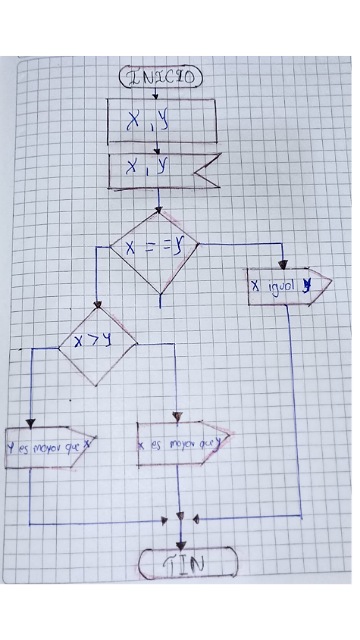 INICIO
X, Y
X, Y
X = = Y
X igual Y
X > Y
Y es mayor que X
X es mayor que y
FIN